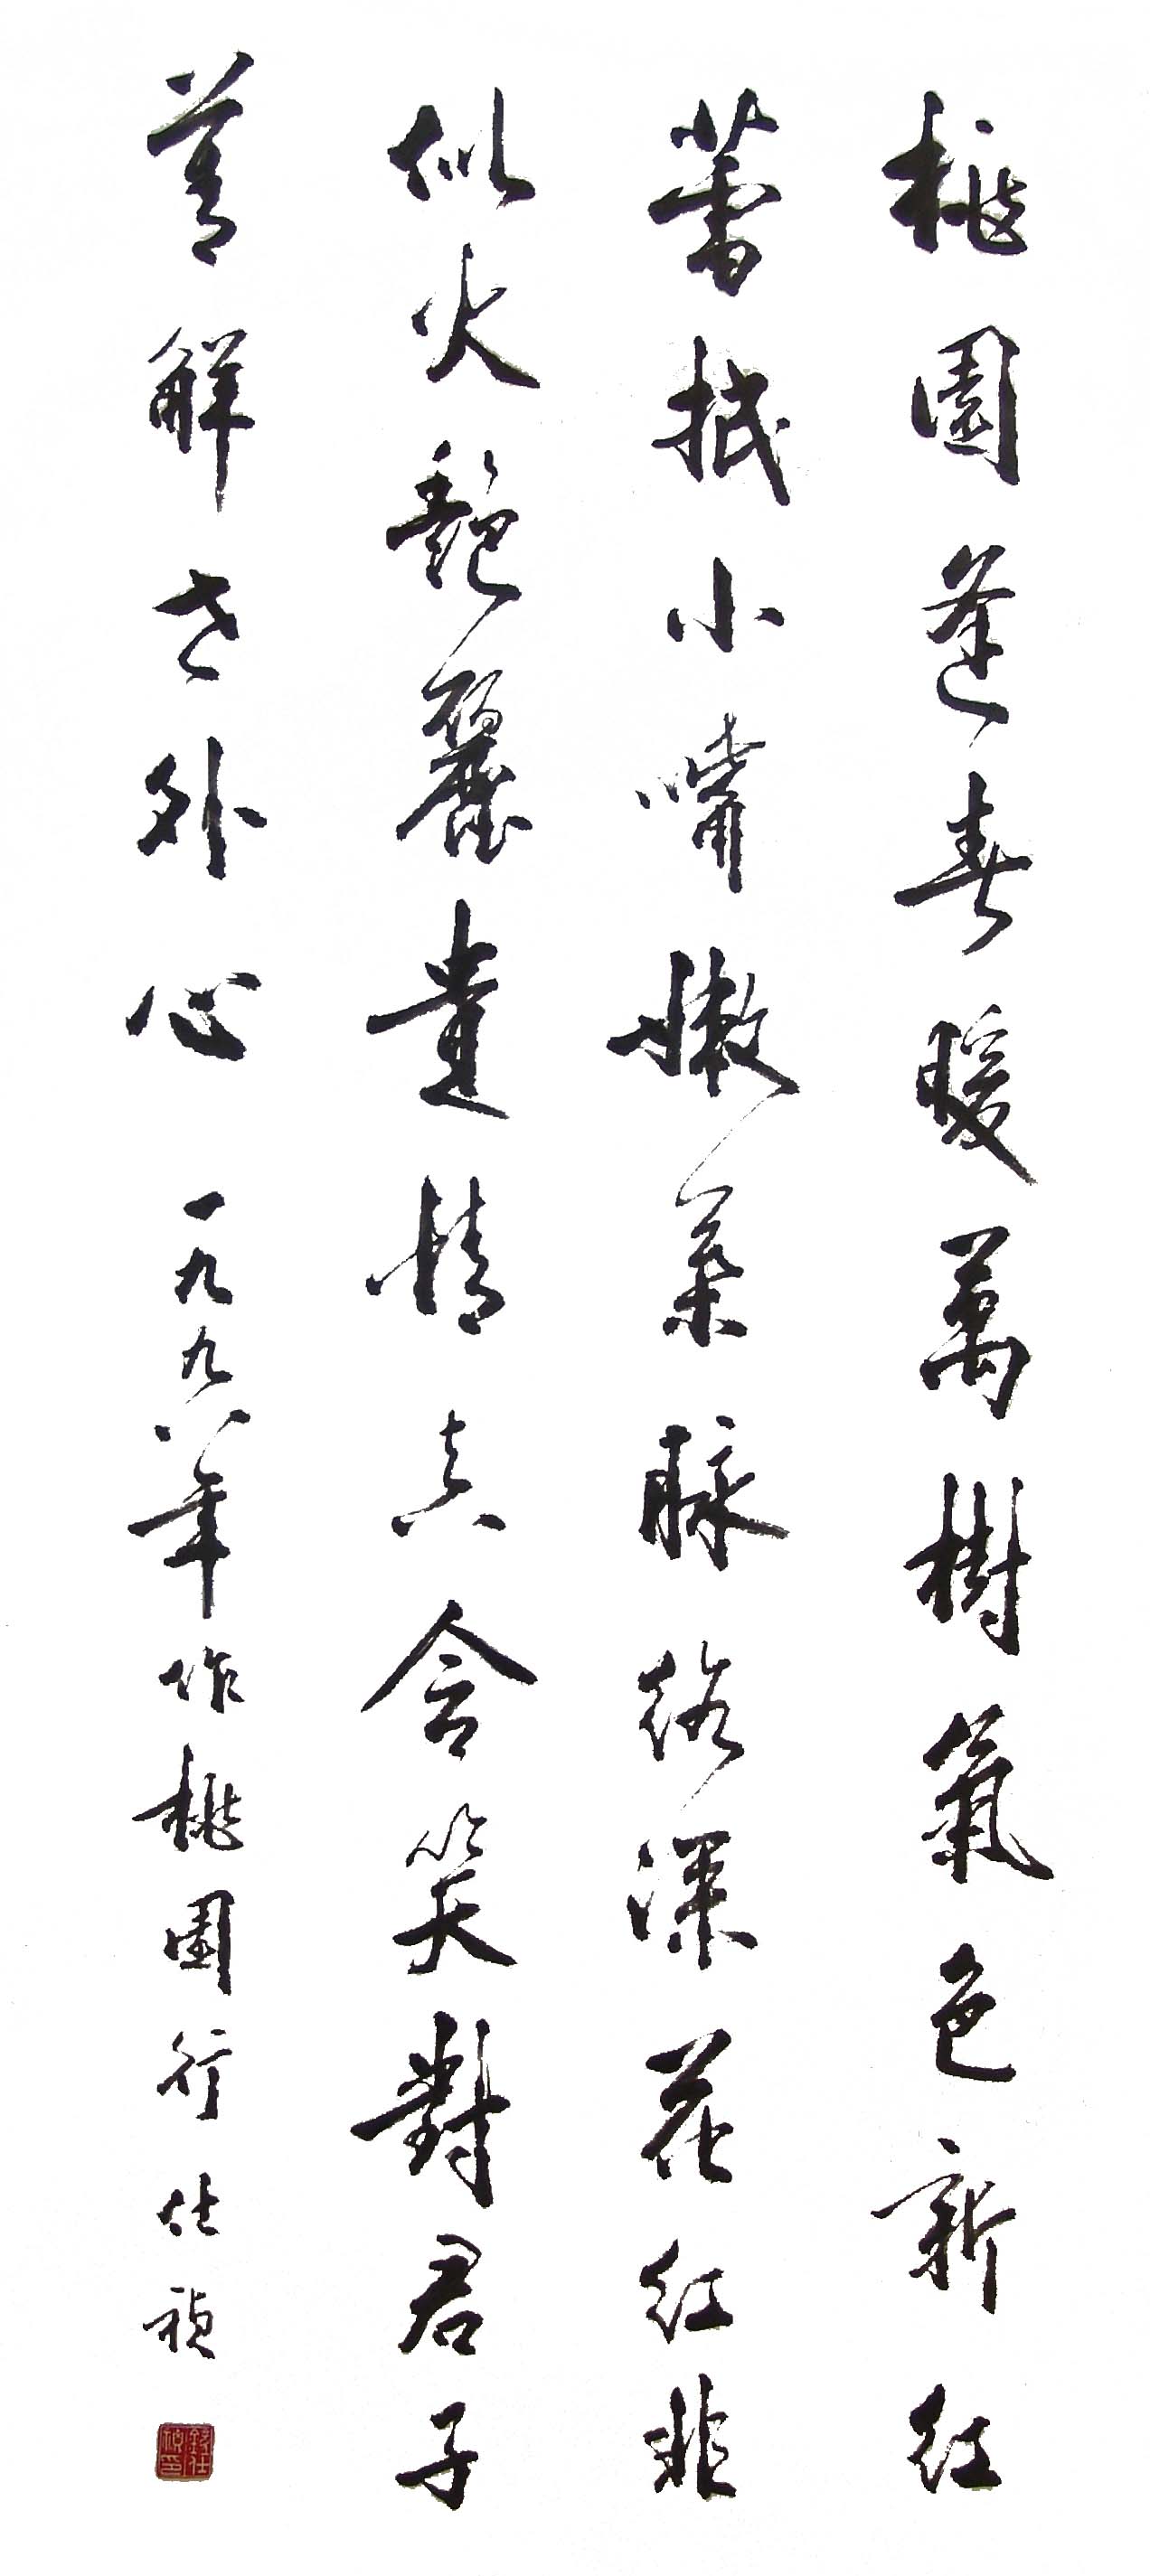 桃園逢春暖萬樹氣色新紅
蕾抿小嘴嫩葉脉絡深花紅非
似火艷麗情真含笑對君子
善解世外心 一九九八年作桃園行 仕禎